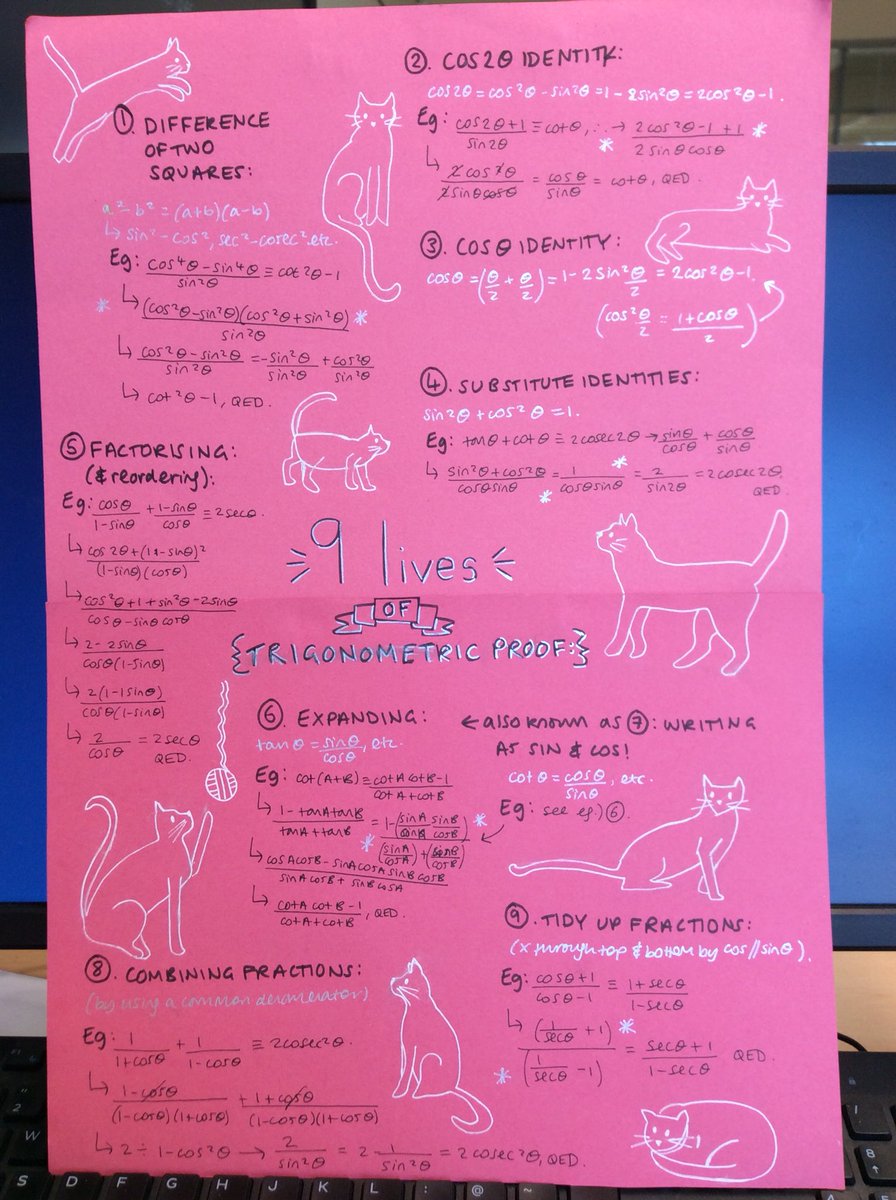 ① DIFFERENCE
OF TWO
SQUARES:
a²-b² = (a+b)(a-b)
↳ sin²-cos², sec²-cosec² etc.
Eg: cos⁴θ-sin⁴θ / sin²θ ≡ cot²θ-1
↳ (cos²θ-sin²θ)(cos²θ+sin²θ) / sin²θ
↳ cos²θ-sin²θ / sin²θ = -sin²θ / sin²θ + cos²θ / sin²θ
↳ cot²θ-1, QED.
②. COS2θ IDENTITY:
cos2θ = cos²θ-sin²θ = 1-2sin²θ = 2cos²θ-1.
Eg: cos2θ+1 / sin2θ ≡ cotθ, ∴ → 2cos²θ-1+1 / 2sinθcosθ
↳ 2cos²θ / 2sinθcosθ = cosθ / sinθ = cotθ, QED.
③. COSθ IDENTITY:
cosθ = (θ/2 + θ/2) = 1-2sin²θ/2 = 2cos²θ-1.
(cos²θ/2 = 1+cosθ / 2)
④. SUBSTITUTE IDENTITIES:
sin²θ+cos²θ = 1.
Eg: tanθ+cotθ ≡ 2cosec2θ → sinθ/cosθ + cosθ/sinθ
↳ sin²θ+cos²θ / cosθsinθ = 1 / cosθsinθ = 2 / sin2θ = 2cosec2θ
QED.
⑤ FACTORISING:
(& reordering):
Eg: cosθ / 1-sinθ + 1-sinθ / cosθ ≡ 2secθ.
↳ cos2θ+(1-sinθ)² / (1-sinθ)(cosθ)
↳ cos²θ+1+sin²θ-2sinθ / cosθ-sinθcosθ
↳ 2-2sinθ / cosθ(1-sinθ)
↳ 2(1-1sinθ) / cosθ(1-sinθ)
↳ 2 / cosθ = 2secθ
QED.
9 lives
OF
{TRIGONOMETRIC PROOF:}
⑥. EXPANDING:
tanθ = sinθ/cosθ, etc.
Eg: cot(A+B) ≡ cotAcotB-1 / cotA+cotB
↳ 1-tanAtanB / tanA+tanB = 1-(sinA/cosA sinB/cosB) / (sinA/cosA)+(sinB/cosB)
↳ cosAcosB-sinAcosAsinBcosB / sinAcosB+sinBcosA
↳ cotAcotB-1 / cotA+cotB, QED.
← also known as ⑦: WRITING
AS SIN & COS!
cotθ = cosθ/sinθ, etc.
Eg: see eg.) ⑥.
⑧. COMBINING FRACTIONS:
(by using a common denominator)
Eg: 1 / 1+cosθ + 1 / 1-cosθ ≡ 2cosec²θ.
↳ 1-cosθ / (1-cosθ)(1+cosθ) + 1+cosθ / (1-cosθ)(1+cosθ)
↳ 2 ÷ 1-cos²θ → 2 / sin²θ = 2 1 / sin²θ = 2cosec²θ, QED.
⑨. TIDY UP FRACTIONS:
(x through top & bottom by cos//sinθ).
Eg: cosθ+1 / cosθ-1 ≡ 1+secθ / 1-secθ
↳ (1/secθ +1) / (1/secθ -1) = secθ+1 / 1-secθ QED.
2
W
S
D
F
G
H
J
K
L
:
@
~
I
B